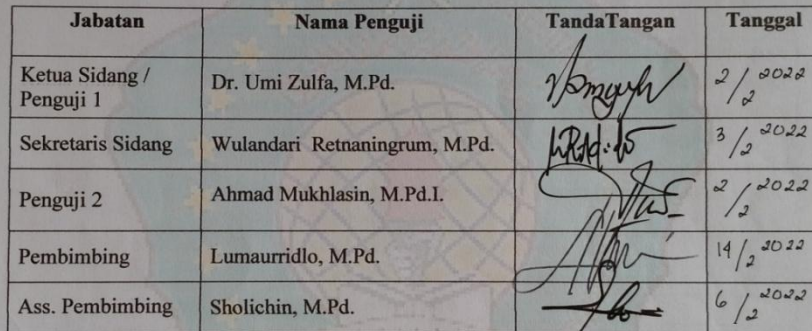 Jabatan Nama Penguji TandaTangan Tanggal
Ketua Sidang /
Penguji 1 Dr. Umi Zulfa, M.Pd. 2/2 2022
Sekretaris Sidang Wulandari Retnaningrum, M.Pd. 3/2 2022
Penguji 2 Ahmad Mukhlasin, M.Pd.I. 2/2 2022
Pembimbing Lumaurridlo, M.Pd. 14/2 2022
Ass. Pembimbing Sholichin, M.Pd. 6/2 2022